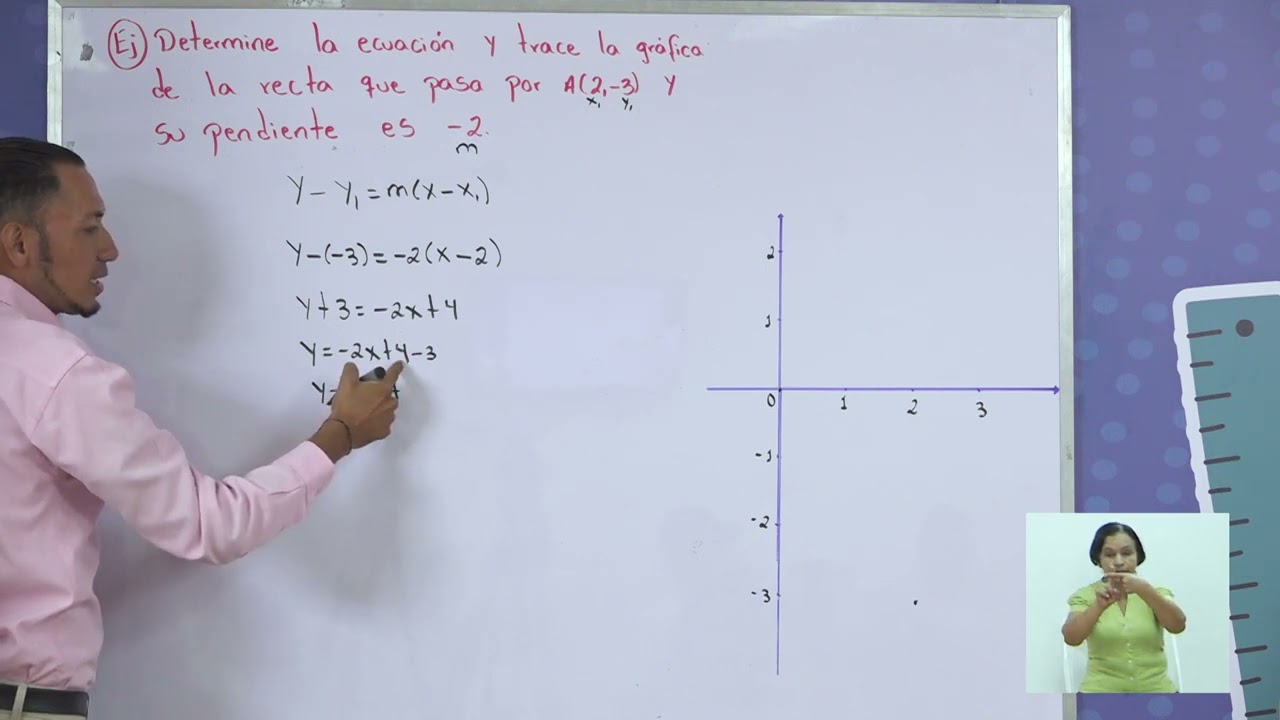 Ej Determine la ecuación y trace la gráfica
de la recta que pasa por A(2,-3) y
x₁ y₁
su pendiente es -2.
m
y - y₁ = m(x - x₁)
y - (-3) = -2(x - 2)
y + 3 = -2x + 4
y = -2x + 4 - 3
y =
2
1
0 1 2 3
-1
-2
-3